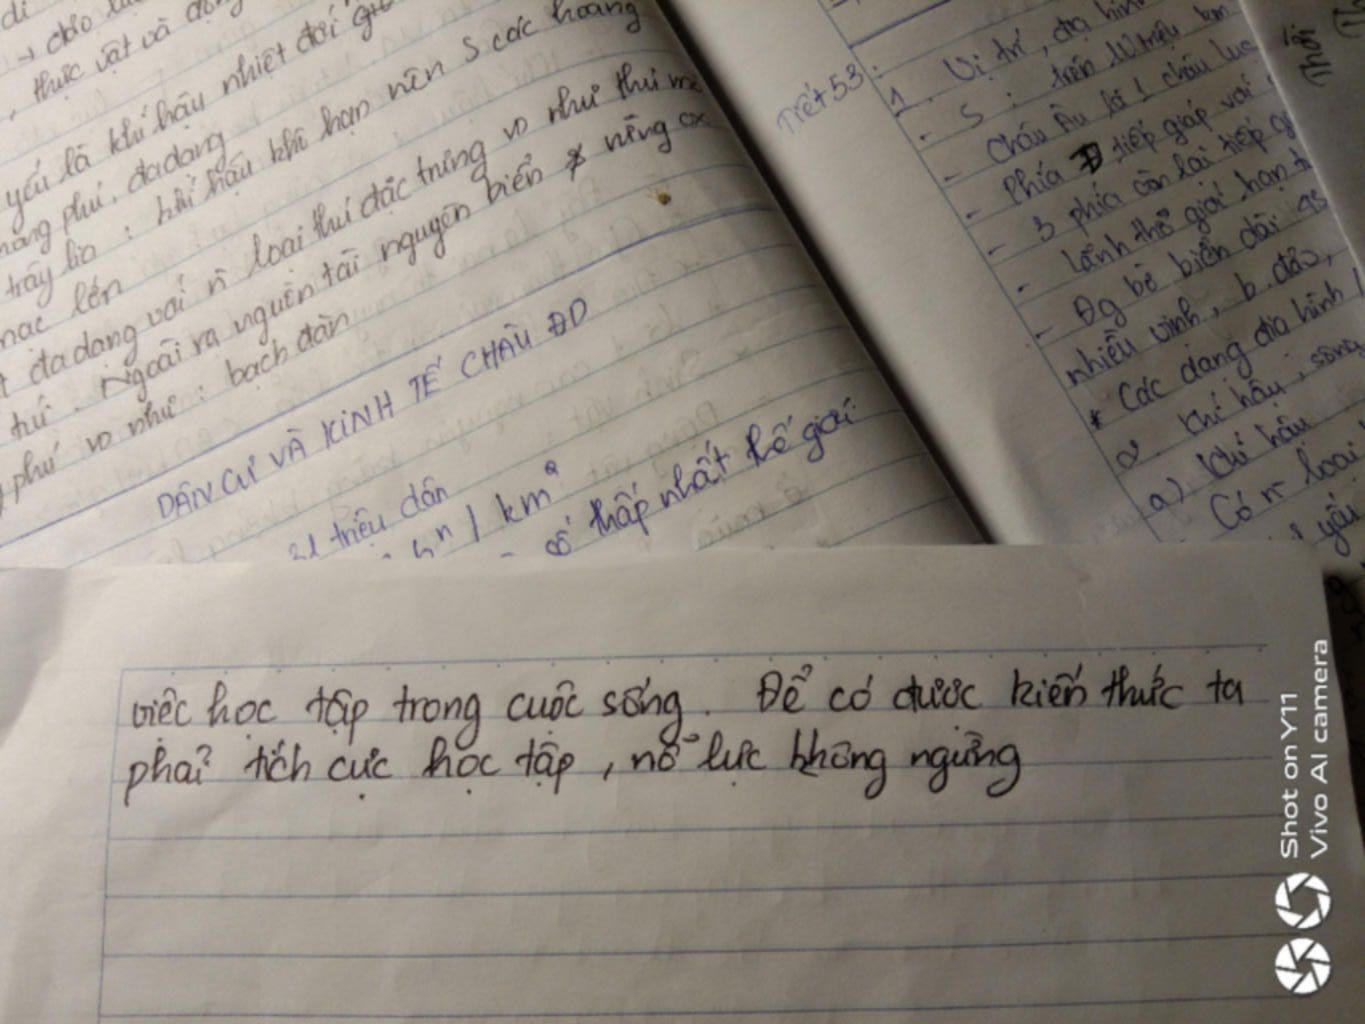 thực vật và
yếu là khí hậu nhiệt đới
phong phú, đa dạng
: khí hậu khô hạn nên S các hoang
mạc lớn
đa dạng với n loài thú đặc trưng vd như thú
thú. Ngoài ra nguồn tài nguyên biển
phú vd như: bạch đàn
DÂN CƯ VÀ KINH TẾ CHÂU ĐD
31 triệu dân
km²
thấp nhất thế giới
Tiết 53
1. Vị trí, địa hình
- S: trên 10 triệu km
- Châu Âu là 1 châu lục
- Phía Đ tiếp giáp với
- 3 phía còn lại tiếp
- Lãnh thổ giới hạn
- Đg bờ biển dài
nhiều vịnh, b. đảo,
* Các dạng địa hình
2. Khí hậu, sông
a) Khí hậu
Có n loại
yếu
việc học tập trong cuộc sống. Để có được kiến thức ta
phải tích cực học tập, nỗ lực không ngừng
Shot on Y11
Vivo AI camera